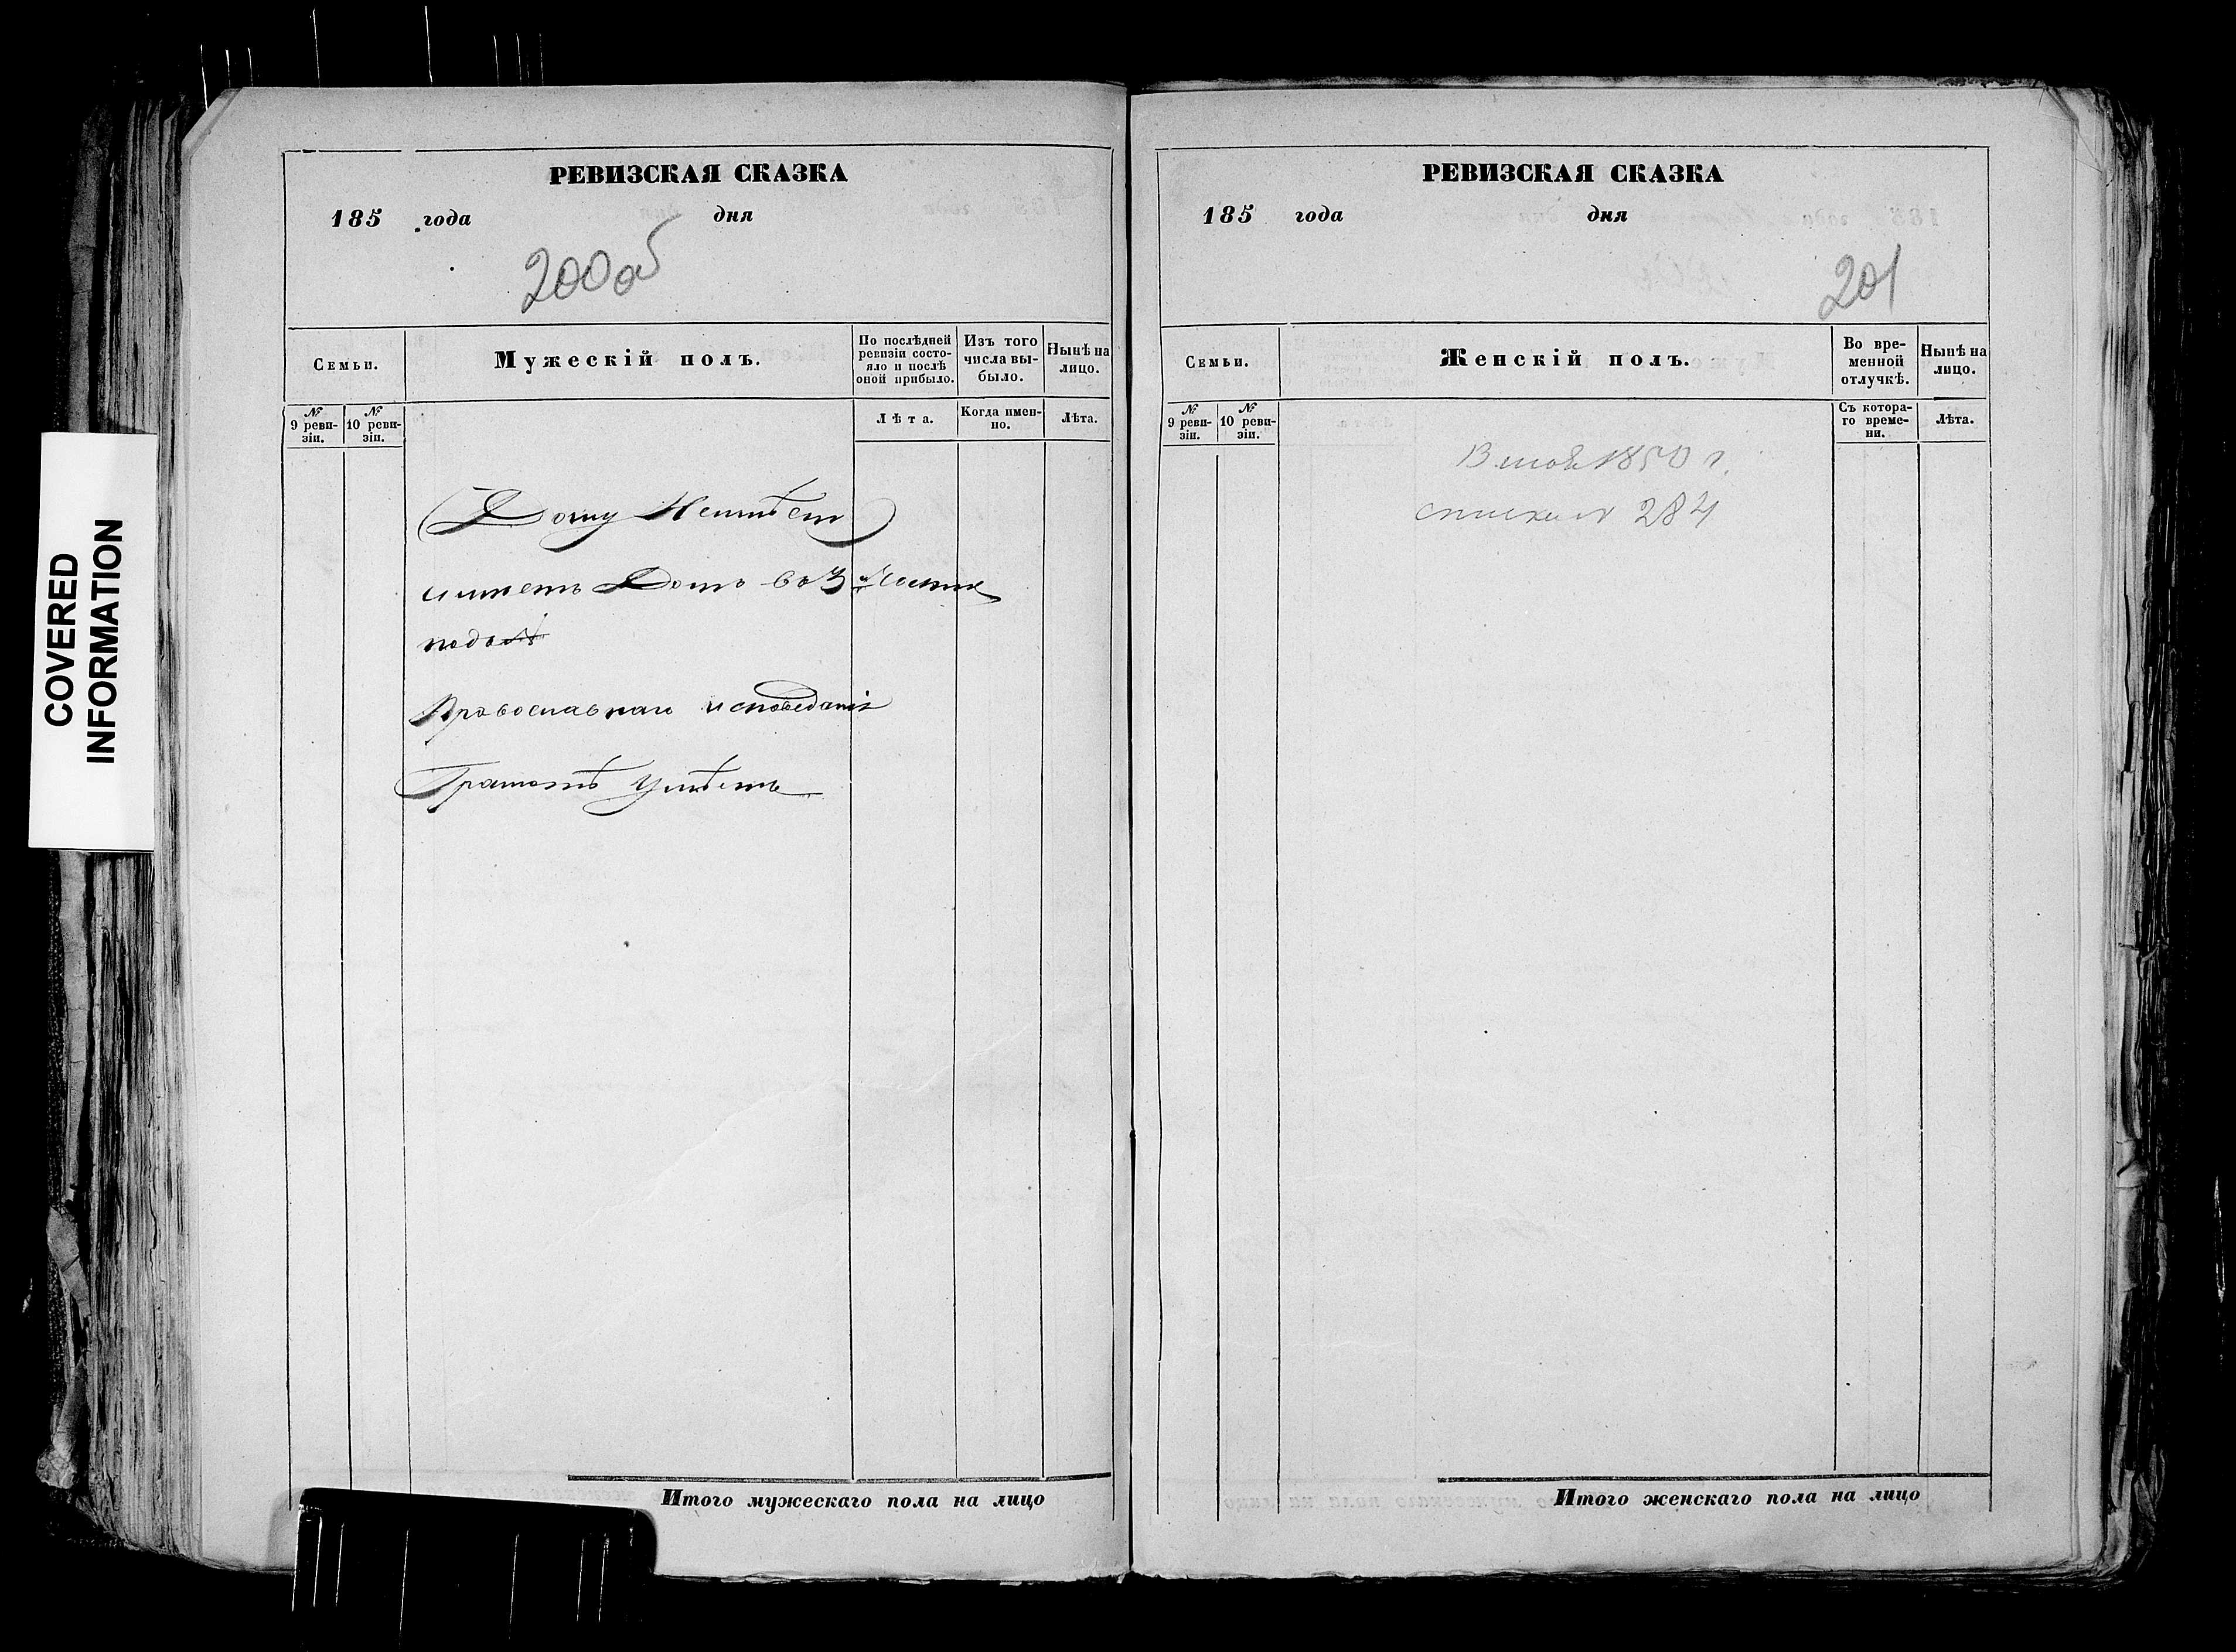 COVERED
INFORMATION
РЕВИЗСКАЯ СКАЗКА
185 года дня
200 об
Семьи.
Мужескій полъ.
По послѣдней ревизіи состояло и послѣ оной прибыло.
Изъ того числа выбыло.
Нынѣ на лицо.
№ 9 ревизіи.
№ 10 ревизіи.
Лѣта.
Когда именно.
Лѣта.
Дому Неимѣетъ
имѣетъ Домъ въ 3й части
подъ №
Православнаго исповѣданія
Грамотѣ Умѣетъ
Итого мужескаго пола на лицо
РЕВИЗСКАЯ СКАЗКА
185 года дня
201
Семьи.
Женскій полъ.
Во временной отлучкѣ.
Нынѣ на лицо.
№ 9 ревизіи.
№ 10 ревизіи.
Съ котораго времени.
Лѣта.
1850 г.
284
Итого женскаго пола на лицо